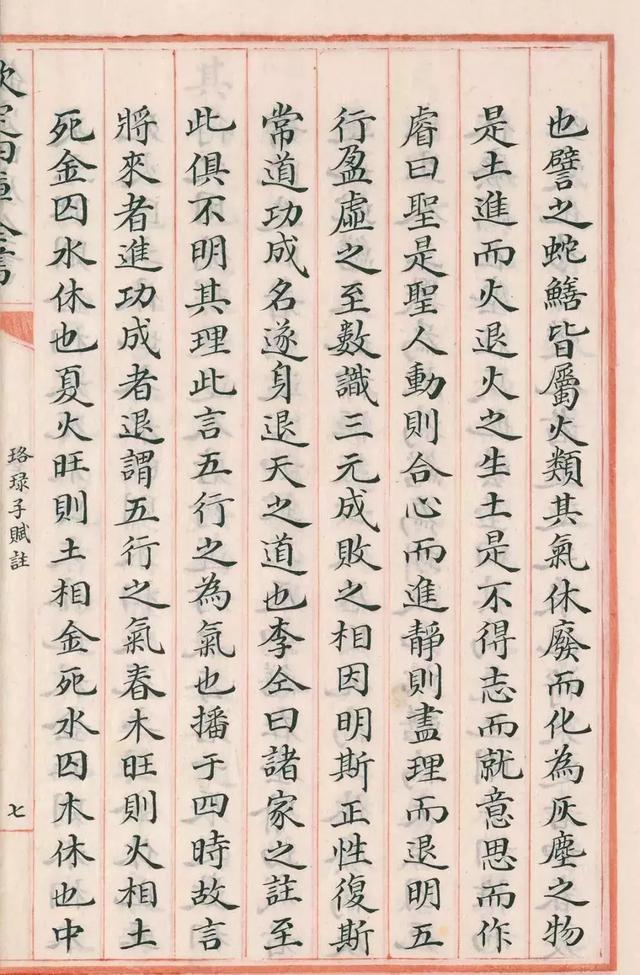 也譬之蛇鱔皆屬火類其氣休廢而化為灰塵之物
是土進而火退火之生土是不得志而就意思而作
睿曰聖是聖人動則合心而進靜則盡理而退明五
行盈虛之至數識三元成敗之相因明斯正性復斯
常道功成名遂身退天之道也李仝曰諸家之註至
此俱不明其理此言五行之為氣也播于四時故言
將來者進功成者退謂五行之氣春木旺則火相土
死金囚水休也夏火旺則土相金死水囚木休也中
欽定四庫全書
珞琭子賦註
七